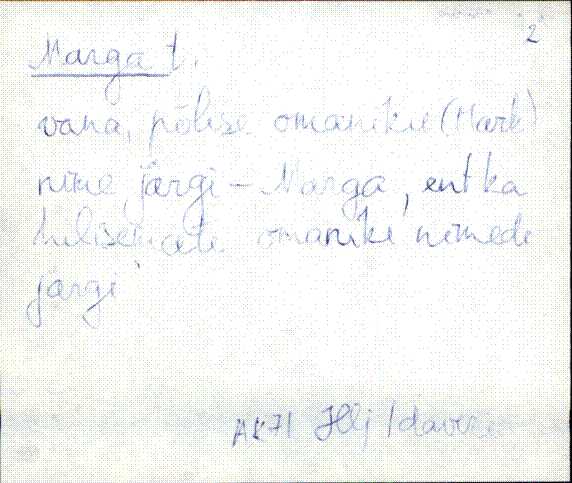 2
Marga t.
vana, põlise omaniku (Mark)
nime järgi – Marga, ent ka
hilisemate omanike nimede
järgi
AK71 Hlj